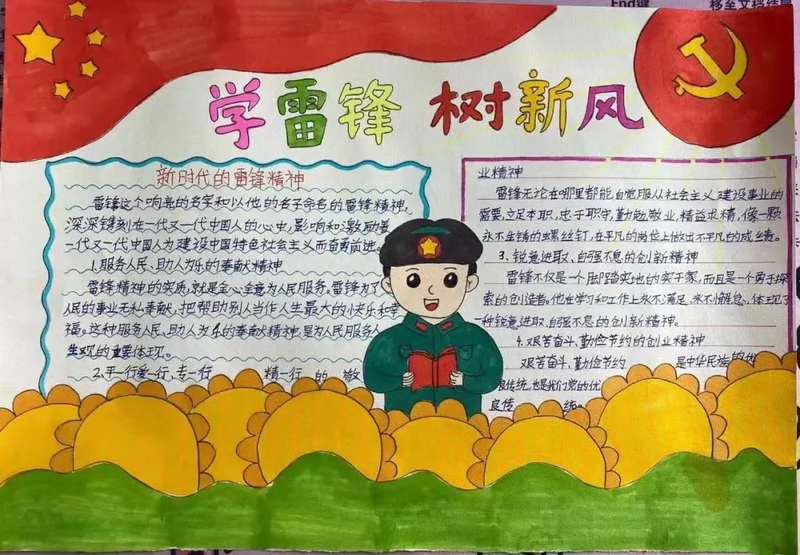 End键
学雷锋 树新风
新时代的雷锋精神
雷锋这个响亮的名字和以他的名字命名的雷锋精神,
深深镌刻在一代又一代中国人的心中,影响和激励着
一代又一代中国人为建设中国特色社会主义而奋勇前进。
1.服务人民、助人为乐的奉献精神
雷锋精神的实质,就是全心全意为人民服务。雷锋为了
人民的事业无私奉献,把帮助别人当作人生最大的快乐和幸
福。这种服务人民、助人为乐的奉献精神是为人民服务人
生观的重要体现。
2.干一行爱一行、专一行 精一行 的 敬
业精神
雷锋无论在哪里都能自觉服从社会主义建设事业的
需要,立足本职,忠于职守,勤勉敬业,精益求精,像一颗
永不生锈的螺丝钉,在平凡的岗位上做出不平凡的成绩。
3.锐意进取、自强不息的创新精神
雷锋不仅是一个脚踏实地的实干家,而且是一个勇于探
索的创造者。他在学习和工作上永不满足,永不懈怠,体现了
一种锐意进取、自强不息的创新精神。
4.艰苦奋斗、勤俭节约的创业精神
艰苦奋斗、勤俭节约 是中华民族的优
良传统,也是我们党的优
良传 统。